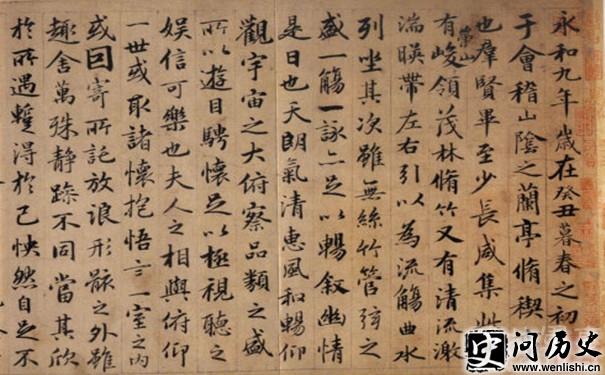 永和九年歲在癸丑暮春之初
于會稽山陰之蘭亭脩禊
也羣賢畢至少長咸集此
有崇山峻領茂林脩竹又有清流激
湍暎帶左右引以為流觴曲水
列坐其次雖無絲竹管弦之
盛一觴一詠亦足以暢叙幽情
是日也天朗氣清惠風和暢仰
觀宇宙之大俯察品類之盛
所以遊目騁懷足以極視聽之
娛信可樂也夫人之相與俯仰
一世或取諸懷抱悟言一室之內
或因寄所託放浪形骸之外雖
趣舍萬殊静躁不同當其欣
於所遇蹔得於己怏然自足不
问历史
www.wenlishi.cn